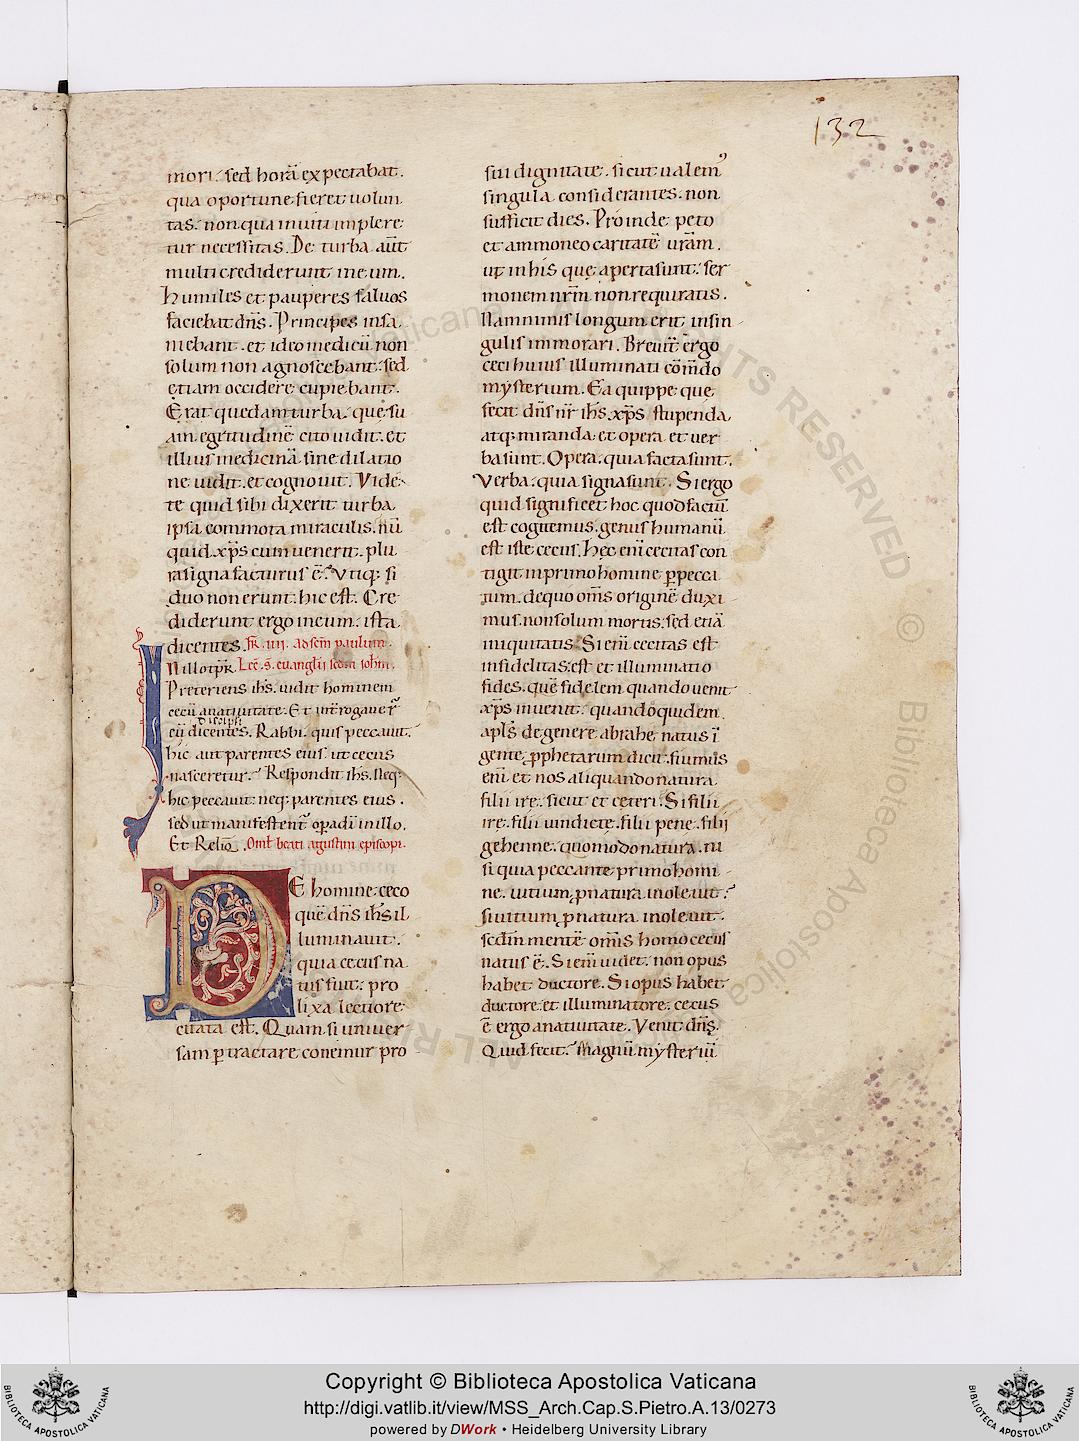 132
mori. sed horā expectabat.
qua oportune fieret uolun
tas. non qua inuiti implere
tur necessitas. De turba aūt
multi crediderunt in eum.
Humiles et pauperes saluos
faciebat dn̄s. Principes insa
niebant. et ideo medicū non
solum non agnoscebant. sed
etiam occidere cupiebant.
Erat quedam turba. que su
am egritudinē cito uidit. et
illius medicinā sine dilatio
ne uidit. et cognouit. Vide
te quid sibi dixerit turba
ipsa commota miraculis. nū
quid xp̄s cum uenerit. plu
ra signa facturus ē? Vtiq; si
duo non erunt. hic est. Cre
diderunt ergo in eum. ista
dicentes. Fr̄. iiii. ad sc̄m paulum.
IN illo tp̄r. Lec̄. s̄. euanglii scdm ioh̄m.
Preteriens ih̄s. uidit hominem
cecū a natiuitate. Et īterrogauer̄
discipli
eū dicentes. Rabbi. quis peccauit.
hic. aut parentes eius. ut cecus
nasceretur? Respondit ih̄s. Neq;
hic peccauit. neq; parentes eius.
sed ut manifestent̄ opa dī in illo.
Et Reliq̄. Oml̄ beati agustini episcopi.
DE homine ceco
quē dn̄s ih̄s il
luminauit.
quia cecus na
tus fuit. pro
lixa lectione
citata est. Quam si uniuer
sam ptractare conemur pro
sui dignitate. sicut ualem᾿
singula considerantes. non
sufficit dies. Proinde peto
et ammoneo caritatē urām.
ut in his que aperta sunt. ser
monem nrm̄ non requiratis.
Nam nimis longum erit in sin
gulis immorari. Breuit̄ ergo
ceci huius illuminati cōmdo
mysterium. Ea quippe que
fecit dn̄s nr̄ ih̄s xp̄s stupenda
atq; miranda. et opera et uer
ba sunt. Opera. quia facta sunt.
Verba. quia signa sunt. Si ergo
quid significet hoc quod factū
est cogitemus. genus humanū
est iste cecus. Hec enī cecitas con
tigit in primo homine p pecca
tum. de quo om̄s originē duxi
mus. non solum mortis. sed etiā
iniquitatis. Si enī cecitas est
infidelitas. est et illuminatio
fides. quē fidelem quando uenit
xp̄s inuenit. quandoquidem
apl̄s de genere abrahe natus ī
gente pphetarum dicit. fuimus
enī et nos aliquando natura
filii ire. sicut et ceteri. Si filii
ire. filii uindicte. filii pene. filii
gehenne. quomodo natura. ni
si quia peccante primo homi
ne. uitium p natura inoleuit?
Si uitium p natura inoleuit.
scdm mentē om̄is homo cecus
natus ē. Si enī uidet. non opus
habet ductore. Si opus habet
ductore et illuminatore. cecus
ē ergo a natiuitate. Venit dn̄s.
Quid fecit? Magnū mysteriū
Copyright © Biblioteca Apostolica Vaticana
http://digi.vatlib.it/view/MSS_Arch.Cap.S.Pietro.A.13/0273
powered by DWork • Heidelberg University Library
BIBLIOTECA APOSTOLICA VATICANA
BIBLIOTECA APOSTOLICA VATICANA